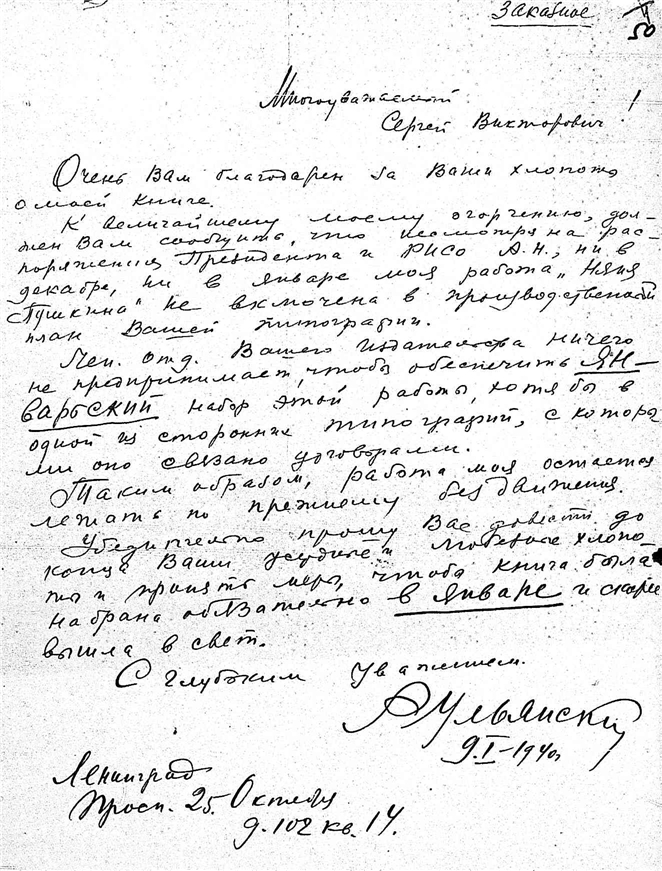 Заказное
50
Многоуважаемый
Сергей Викторович!
Очень Вам благодарен за Ваши хлопоты
о моей книге.
К величайшему моему огорчению, дол-
жен Вам сообщить, что несмотря на рас-
поряжения Президента и РИСО А.Н.; ни в
декабре, ни в январе моя работа „Няня
Пушкина" не включена в производственный
план Вашей типографии.
Лен. отд. Вашего издательства ничего
не предпринимает, чтобы обеспечить ян-
варьский набор этой работы, хотя бы в
одной из сторонних типографий, с котора
ми оно связано договорами.
Таким образом, работа моя остается
лежать по прежнему без движения.
Убедительно прошу Вас довести до
конца Ваши и любезные хлопо-
ты и принять меры, чтобы книга была
набрана обязательно в январе и скорее
вышла в свет.
С глубоким уважением.
А Ульянский
9.I-1940г
Ленинград
Просп. 25. Октября
д. 102 кв. 14.